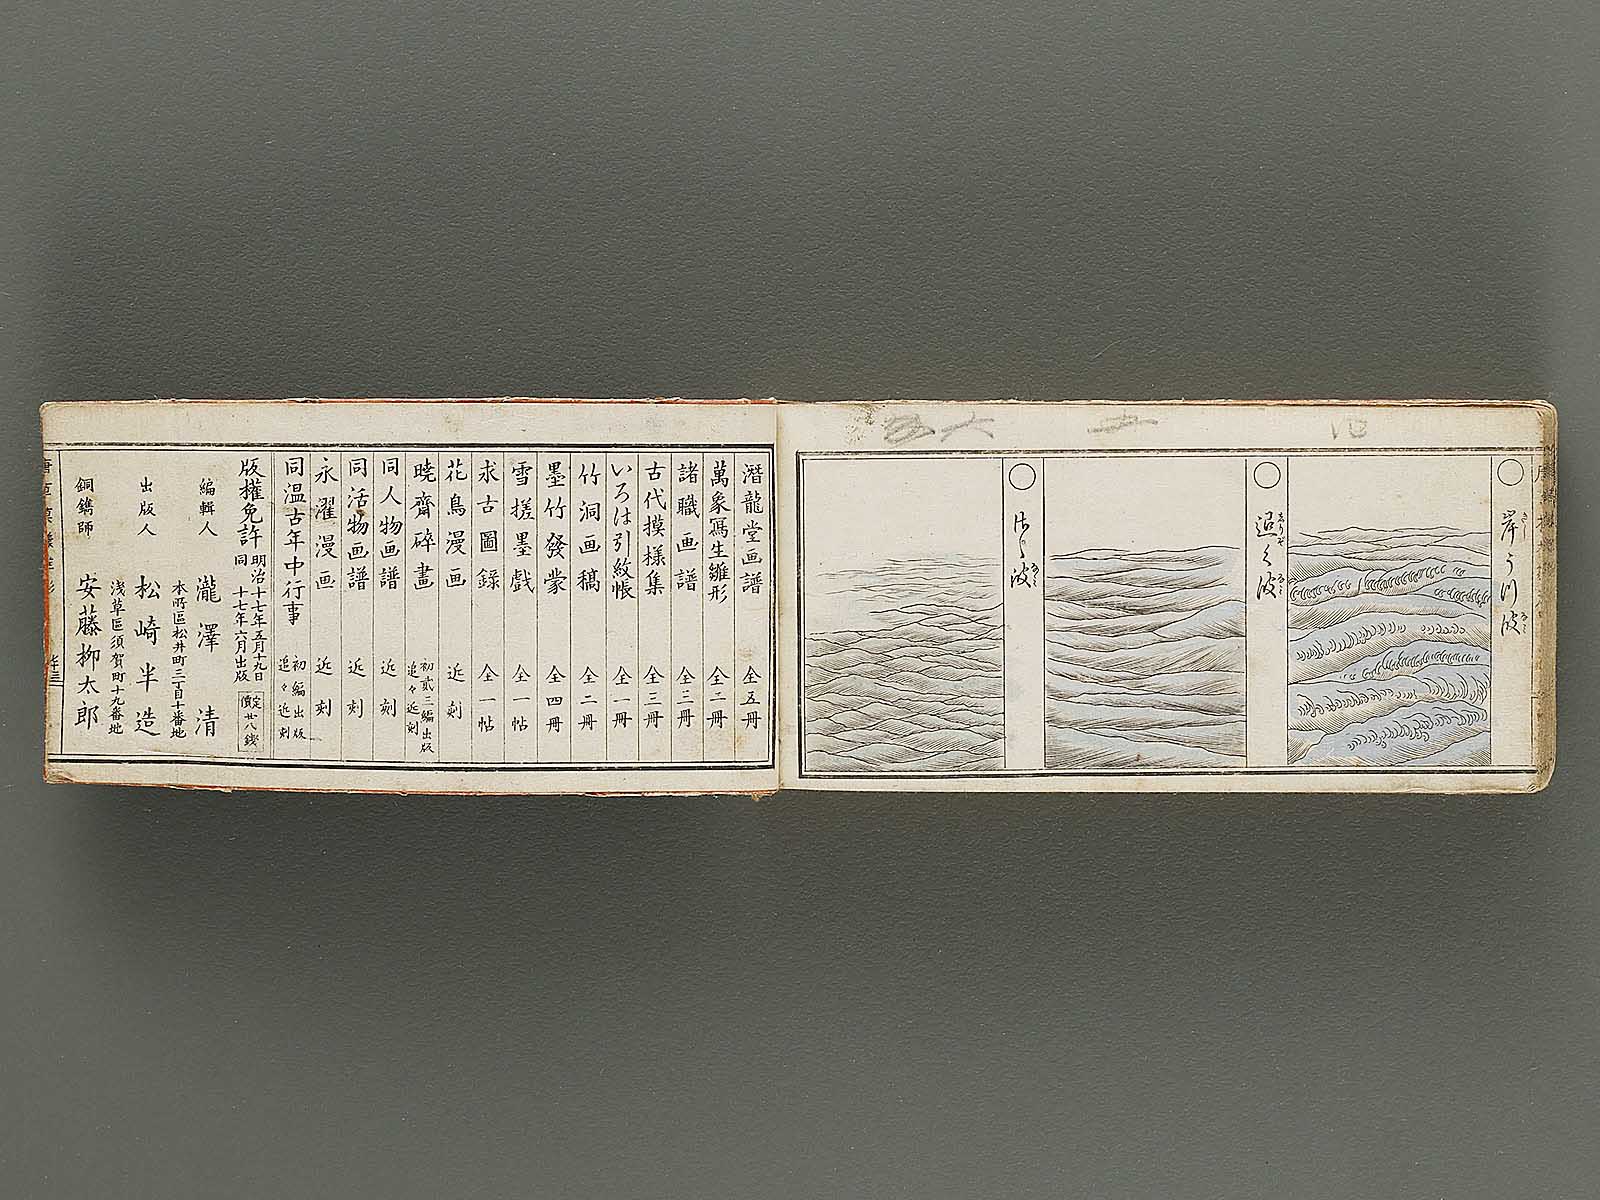 岸うつ波
きし
なみ
沼く波
なみ
波
なみ
四
五
六
潛龍堂画譜 全五冊
萬象寫生雛形 全二冊
諸職画譜 全三冊
古代摸㨾集 全三冊
いろは引紋帳 全一冊
竹洞画稿 全二冊
墨竹發蒙 全四冊
雪搓墨戯 全一帖
求古圖録 全一帖
花鳥漫画 近刻
曉齋碎畫 初貳三編出版 追々近刻
同人物画譜 近刻
同活物画譜 近刻
永濯漫画 近刻
同温古年中行事 初編出版 追々近刻
版權免許 明治十七年五月十九日
同 十七年六月出版
定價廿八錢
編輯人 瀧澤清
本所區松井町三丁目十番地
出版人 松崎半造
浅草區須賀町十九番地
銅鐫師 安藤柳太郎